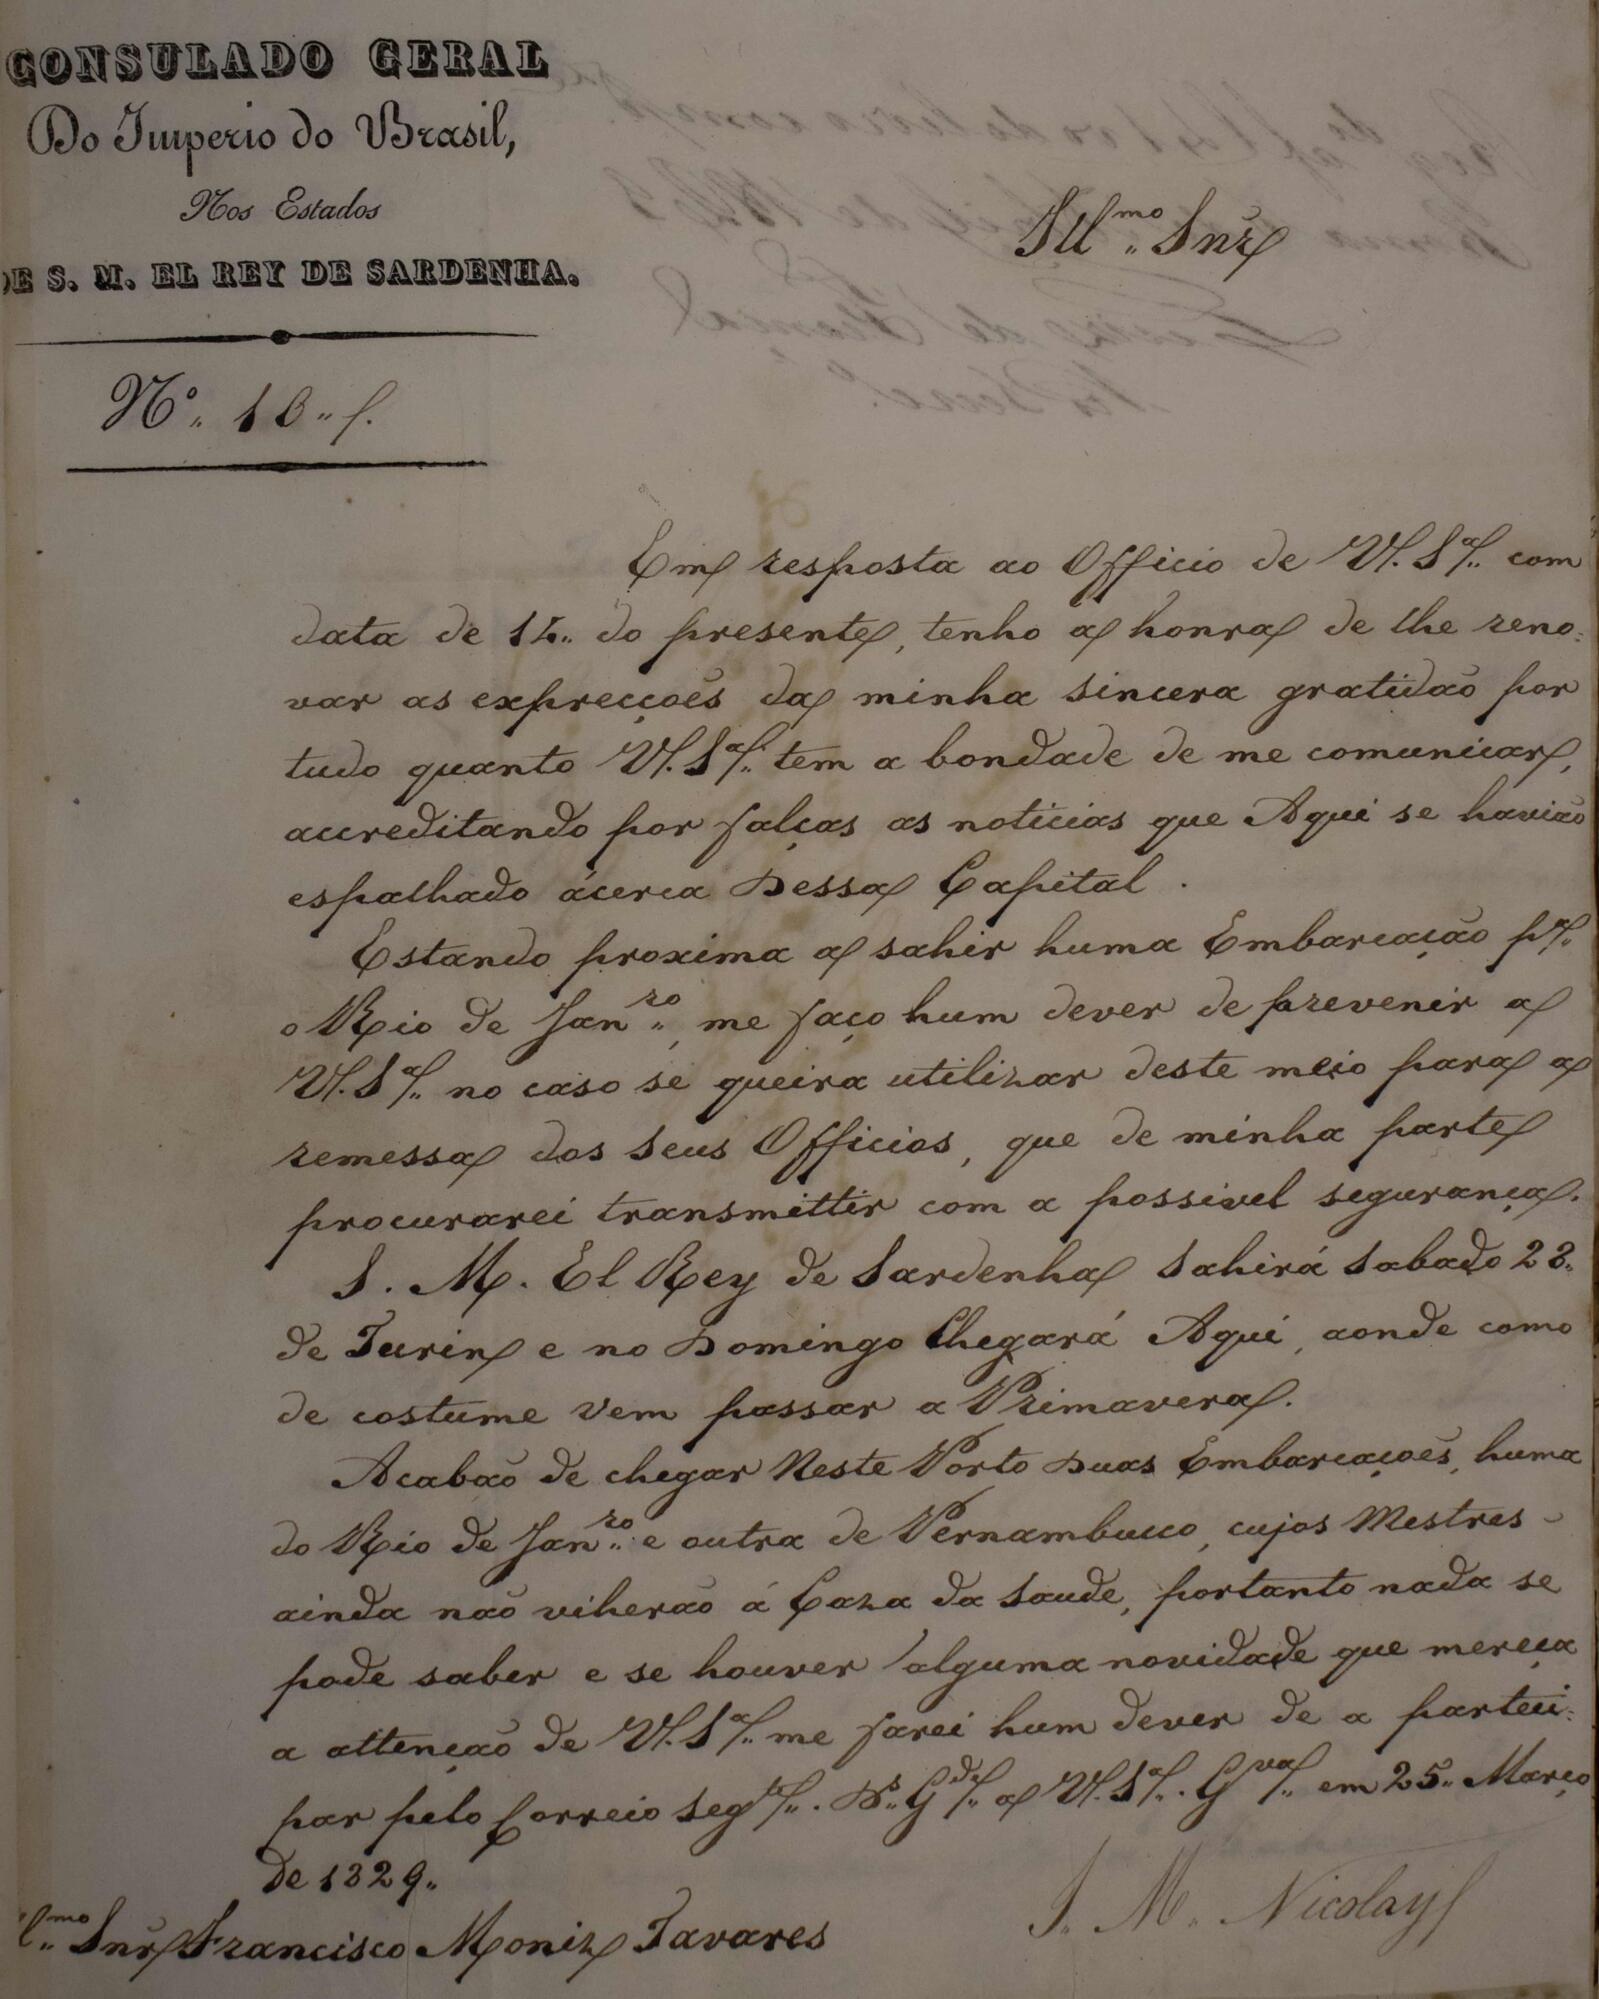 CONSULADO GERAL
Do Imperio do Brasil,
Nos Estados
DE S. M. EL REY DE SARDENHA.
Ill.mo Snr
Nº. 10
Em resposta ao Officio de V. Sª. com
data de 14 do presente, tenho a honra de lhe reno:
var as exprecçoẽs da minha sincera gratidaõ por
tudo quanto V. Sª. tem a bondade de me comunicar,
accreditando por falças as noticias que Aqui se haviaõ
espalhado ácerca Dessa Capital.
Estando proxima a sahir huma Embarcaçaõ pª.
o Rio de Jan.ro, me faço hum dever de prevenir a
V. Sª. no caso se queira utilizar deste meio para a
remessa dos seus Officios, que de minha parte
procurarei transmittir com a possivel segurança.
S. M. El Rey de Sardenha Sahirá Sabado 28.
de Turin e no Domingo Chegará Aqui, aonde como
de costume vem passar a Primavera.
Acabaõ de chegar Neste Porto Duas Embarcaçoẽs, huma
do Rio de Jan.ro e outra de Pernambuco, cujos Mestres
ainda naõ viheraõ á Caza da Saude, portanto nada se
pode saber e se houver alguma novidade que mereça
a attençaõ de V. Sª. me farei hum dever de a partici:
par pelo Correio seg.te. D.s G.de a V. Sª. G.va em 25 Março
De 1829.
J. M. Nicolay
Ill.mo Snr Francisco Moniz Tavares